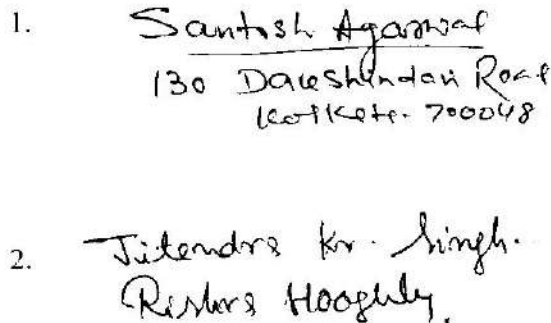 1. Santosh Agarwal
130 Dakshindari Road
Kolkata - 700048
2. Jitendra Kr. Singh.
Rishra Hooghly.